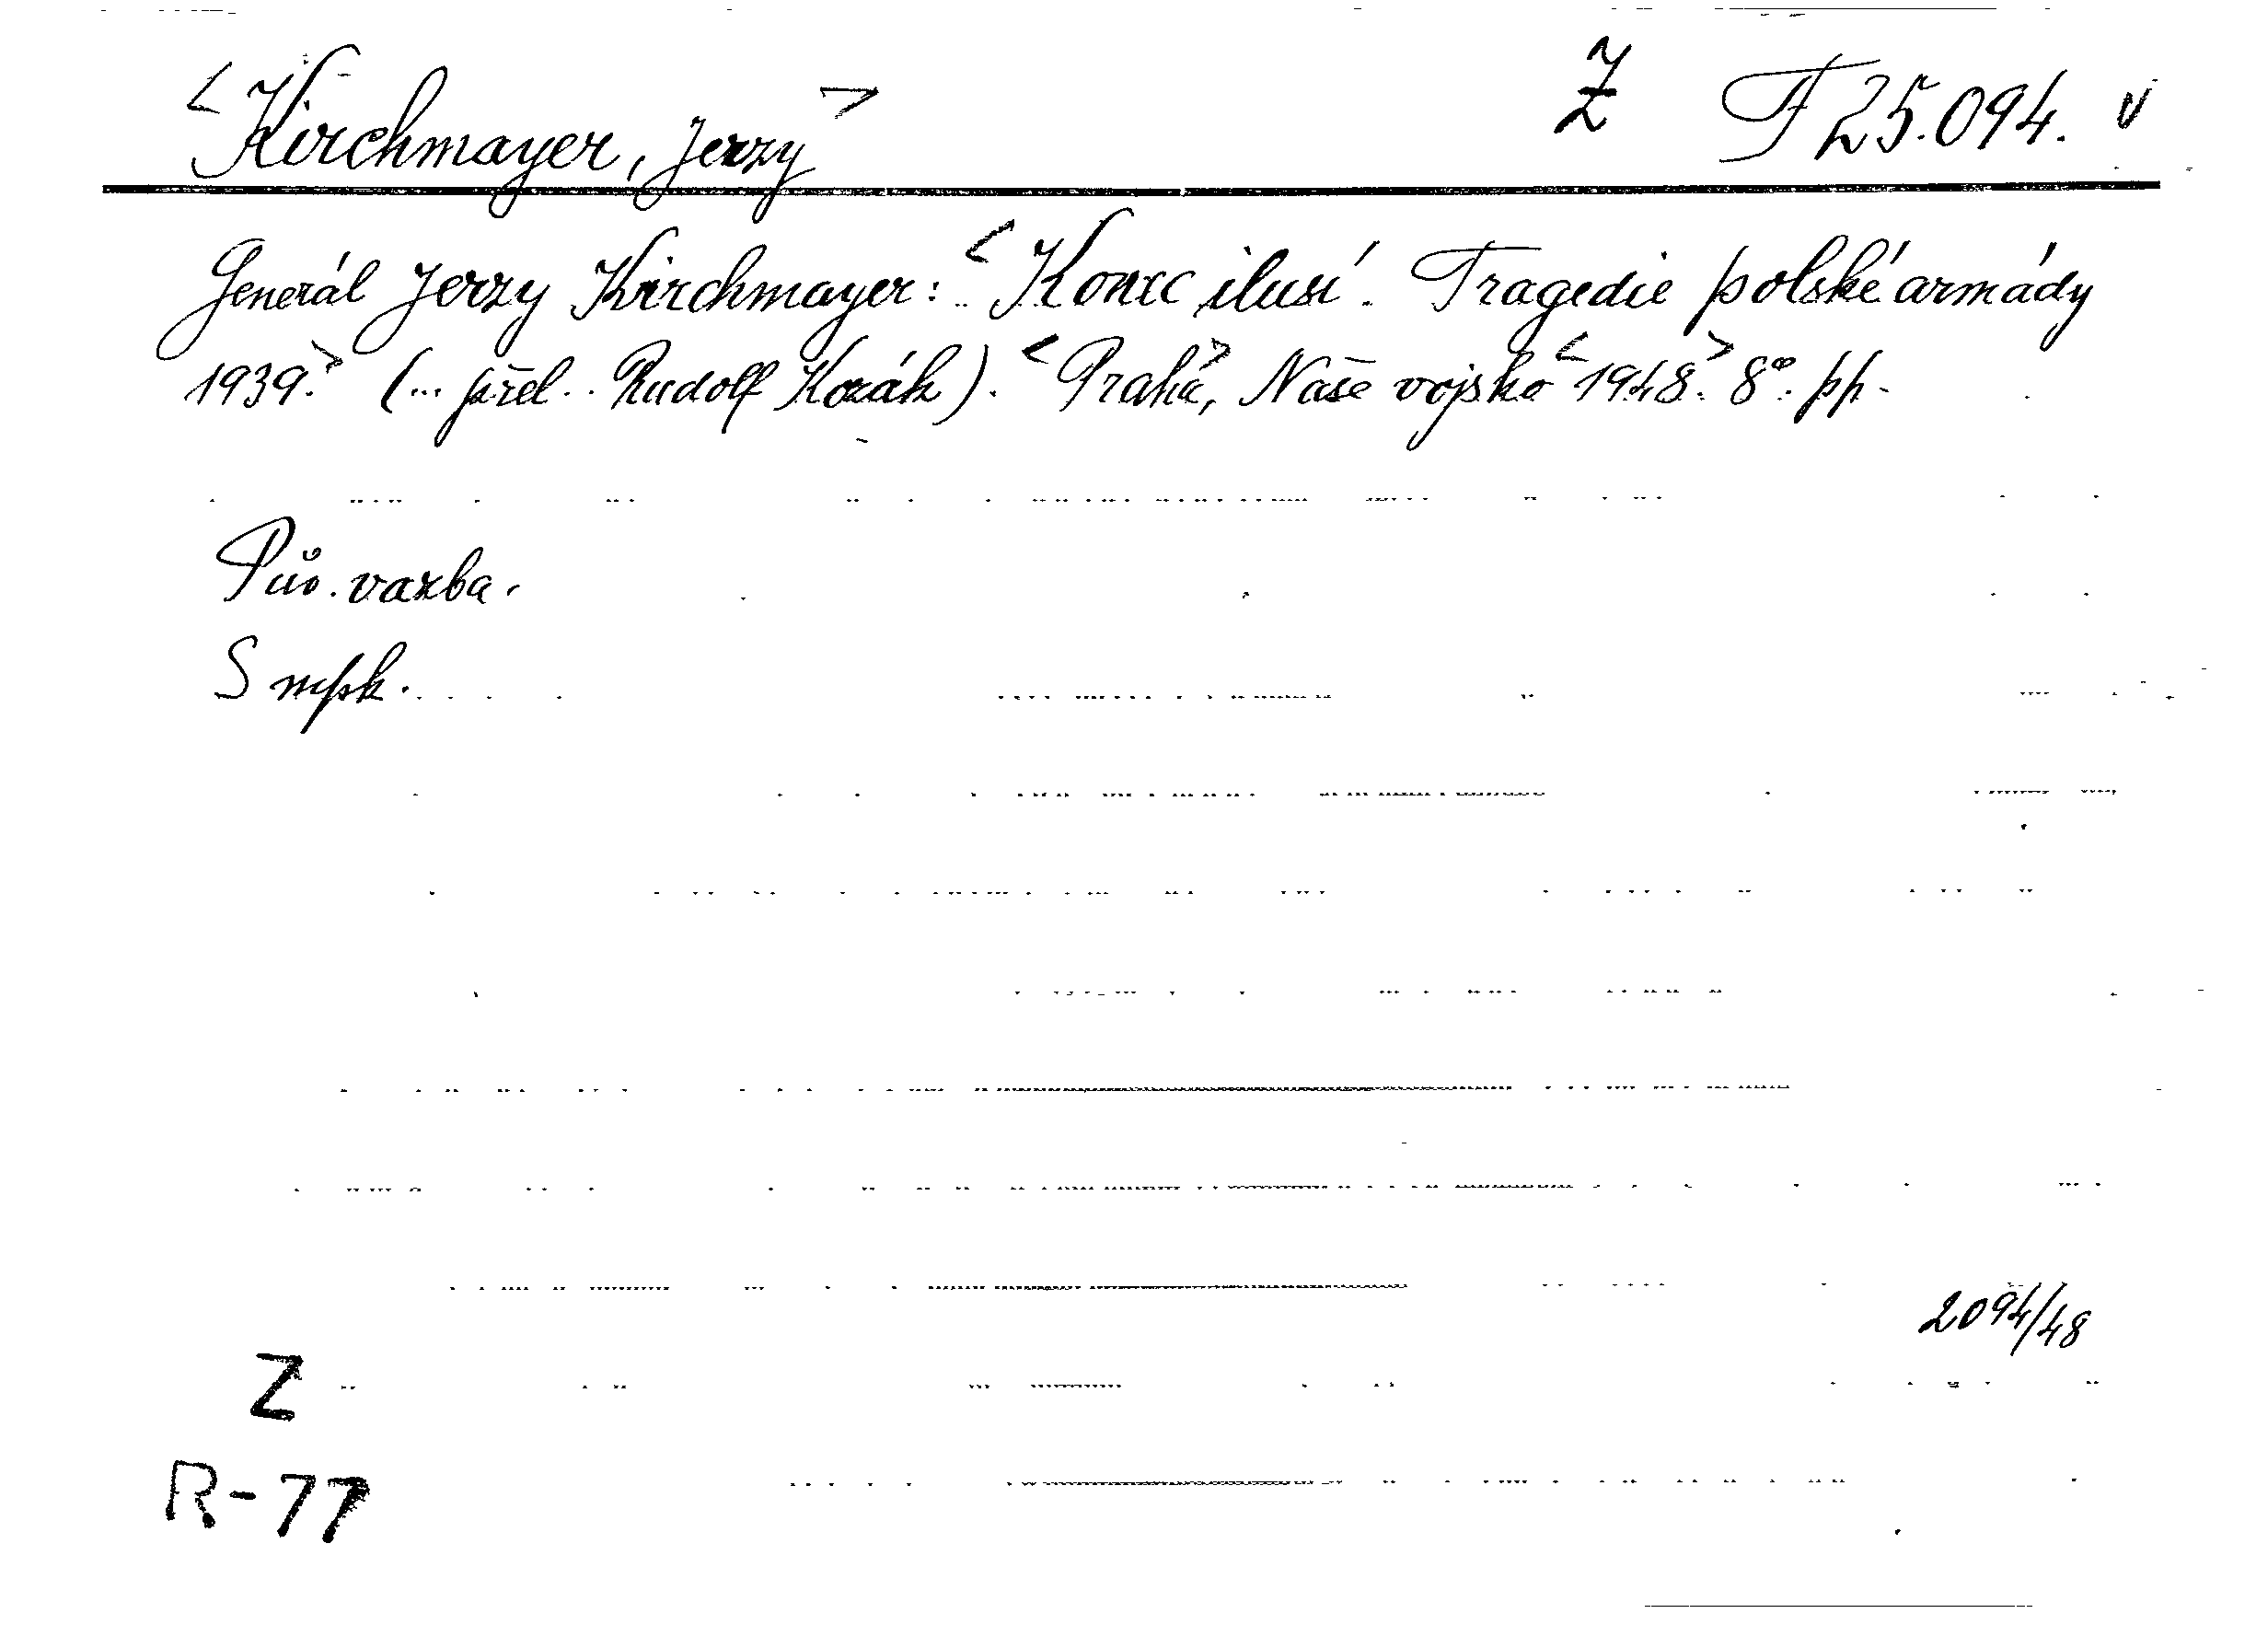 <Kirchmayer, Jerzy> Z F 25.094. v
Generál Jerzy Kirchmayer: <Konec ilusí. Tragedie polské armády
1939.> (... přel.. Rudolf Kozák). <Praha>, Naše vojsko <1948.> 8°. pp.
Pův. vazba.
S mpk.
2094/48
Z
R-77